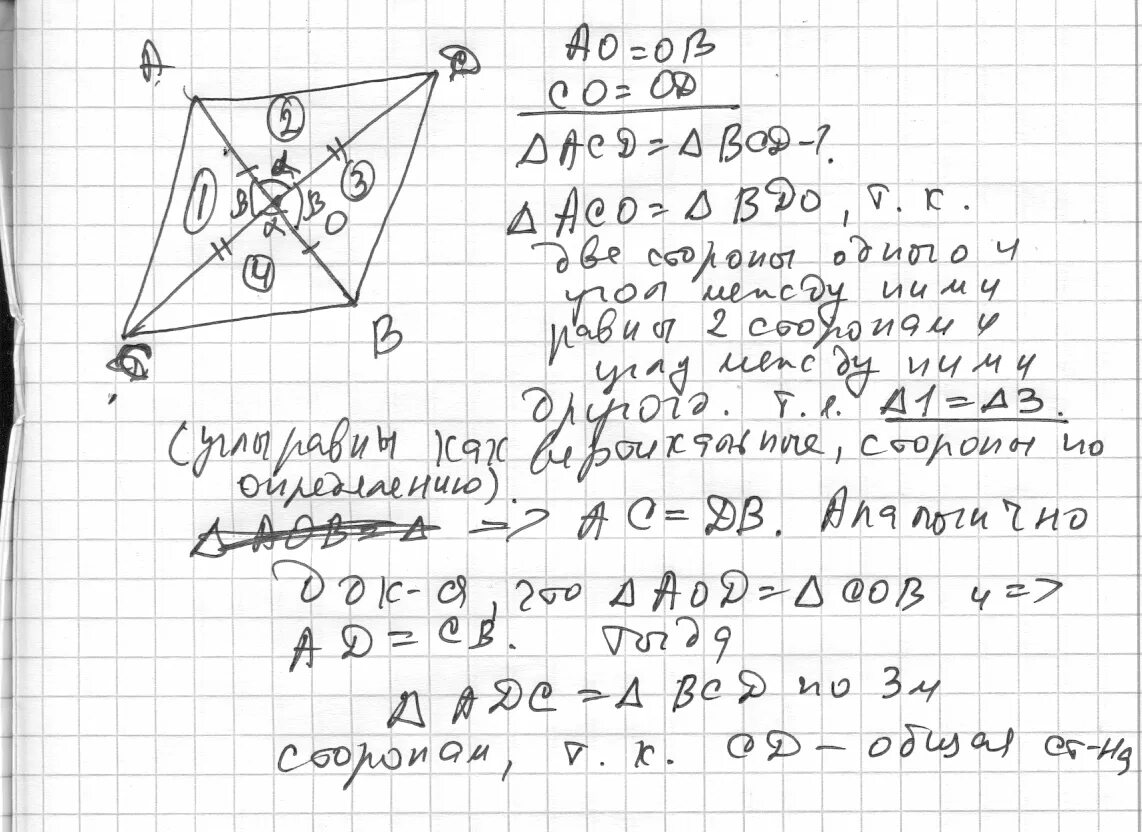 A
D
2
α
1
B
B
3
α
O
4
B
C
AO=OB
CO=OD
ΔACD=ΔBCD-?.
ΔACO=ΔBDO, т.к.
две стороны одного и
угол между ними
равны 2 сторонам и
углу между ними
другого. т.е. Δ1=Δ3.
(углы равны как вертикальные, стороны по
определению).
ΔAOB=Δ => AC=DB. Аналогично
док-я, что ΔAOD=ΔCOB и =>
AD=CB. тогда
ΔADC=ΔBCD по 3м
сторонам, т.к. CD – общая ст-на